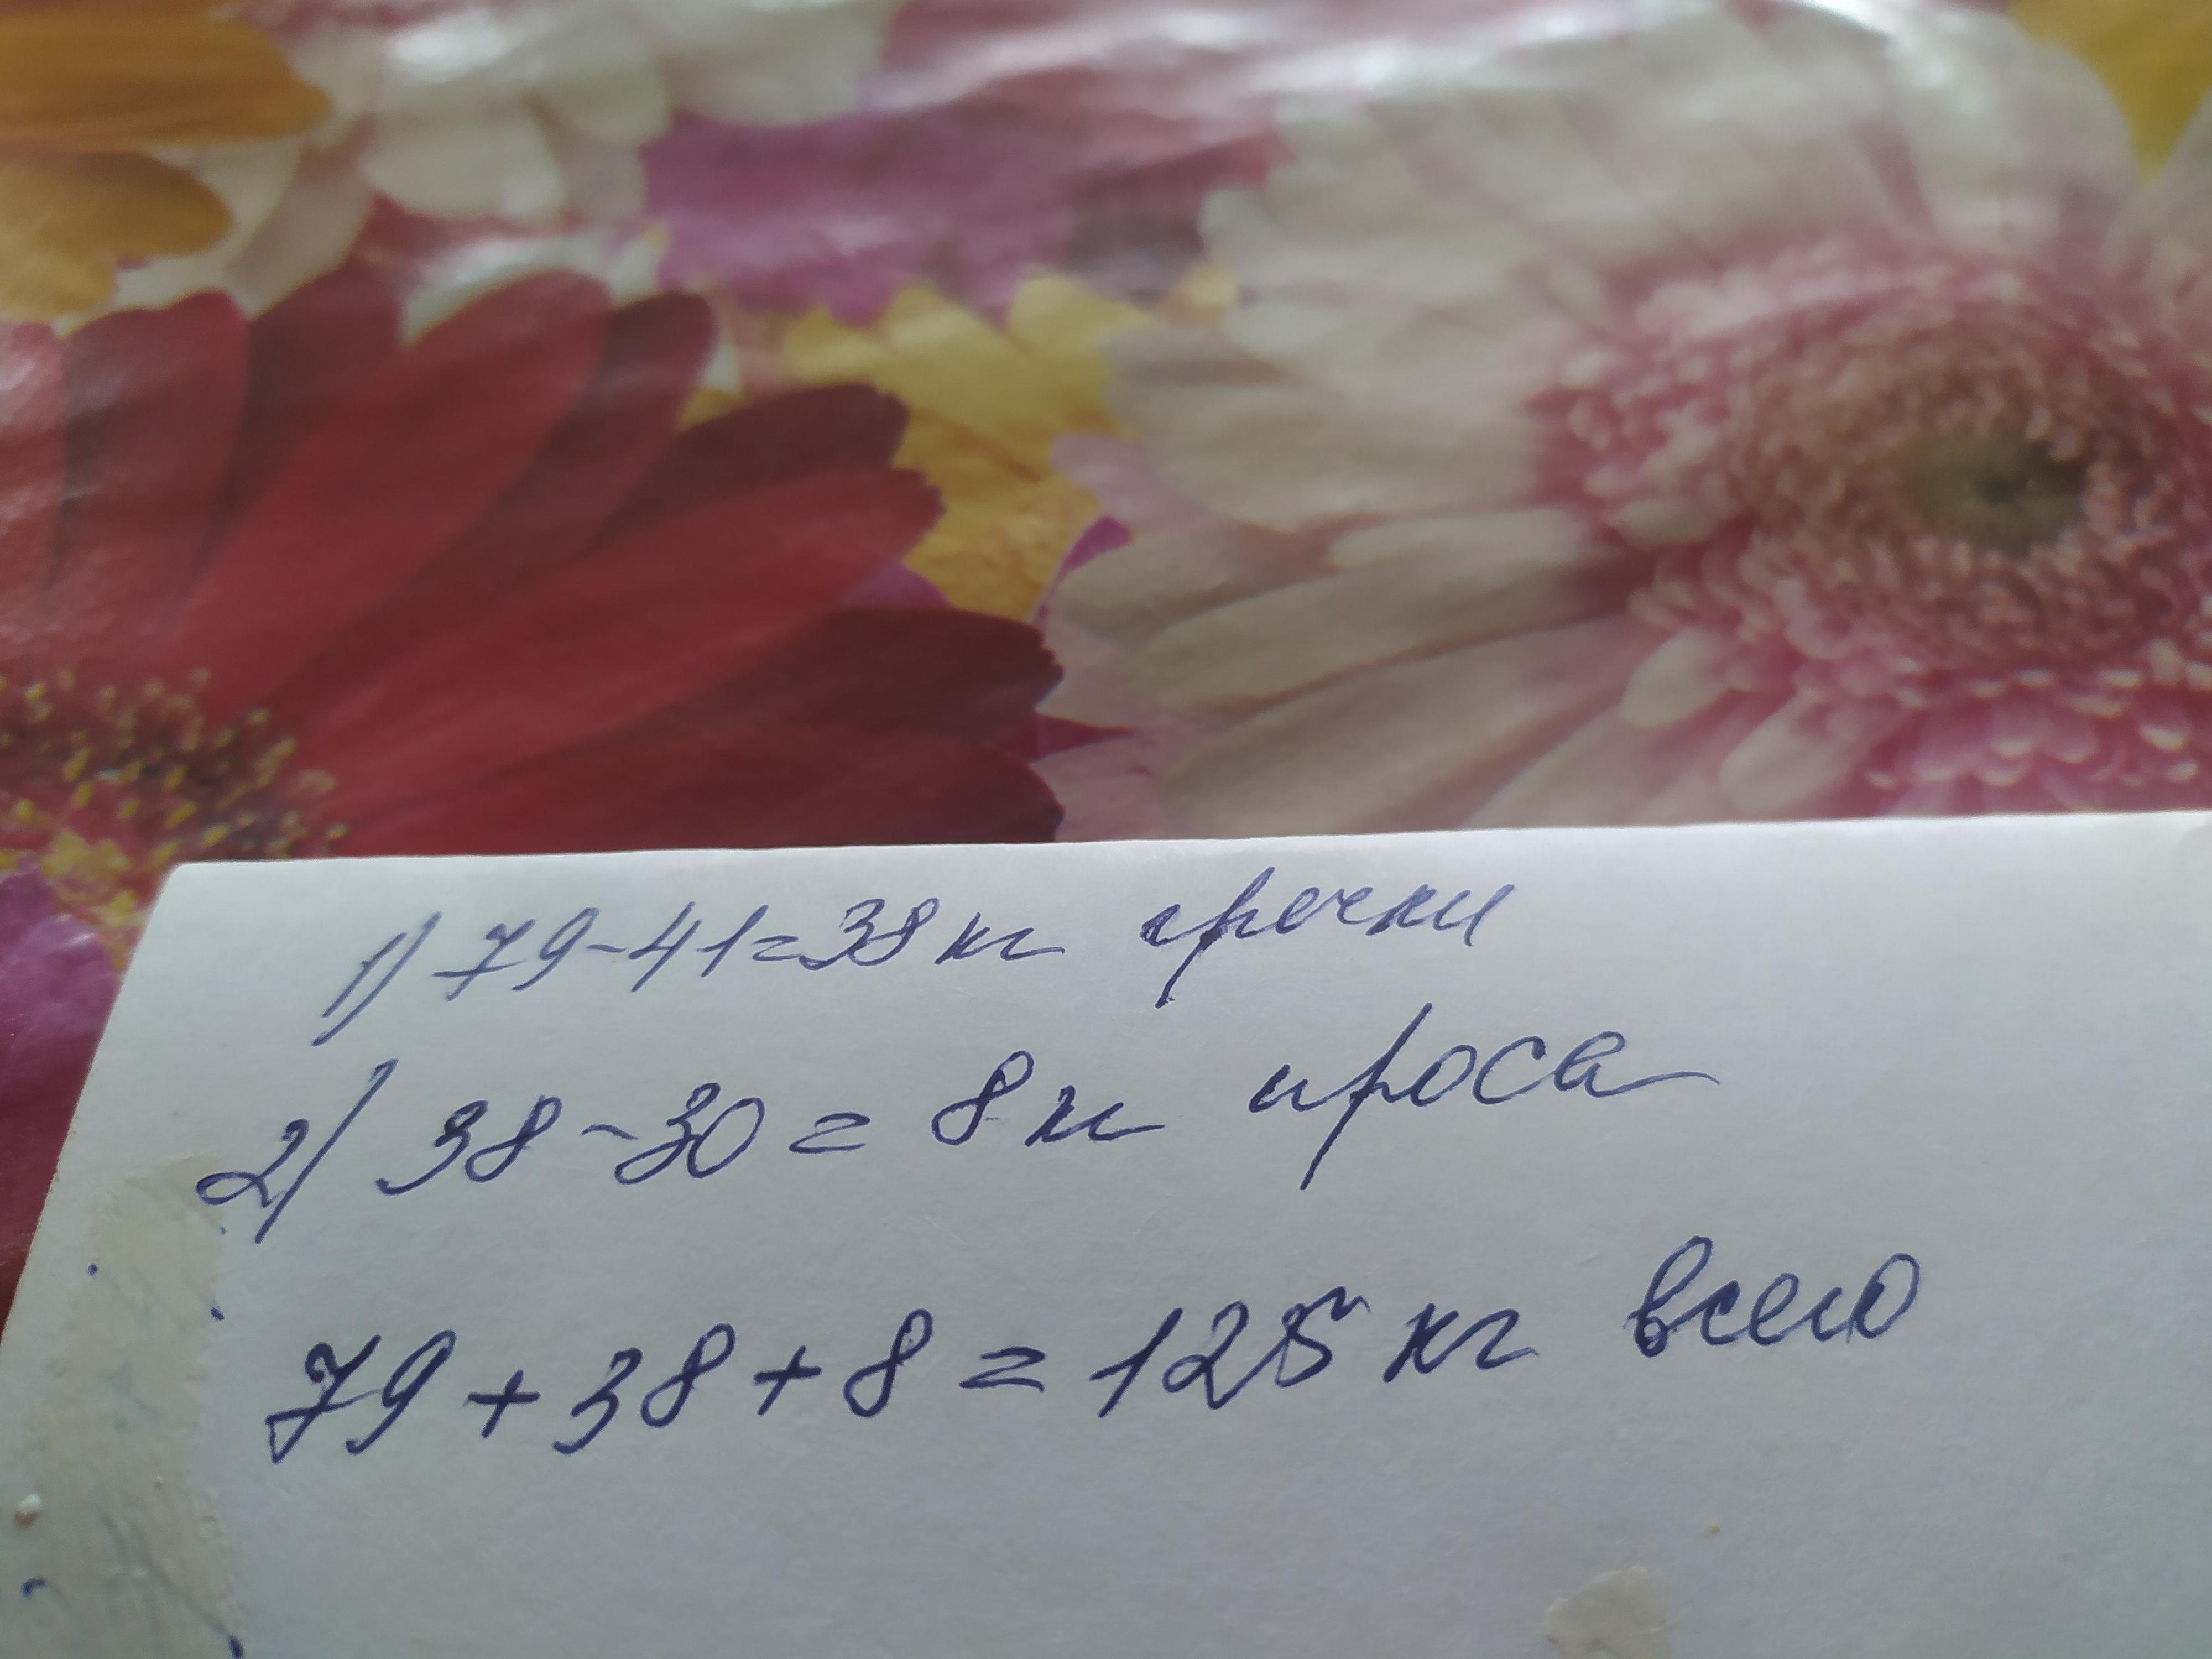 1) 79-41=38 кг гречки
2) 38-30=8 кг проса
79+38+8=125 кг всего